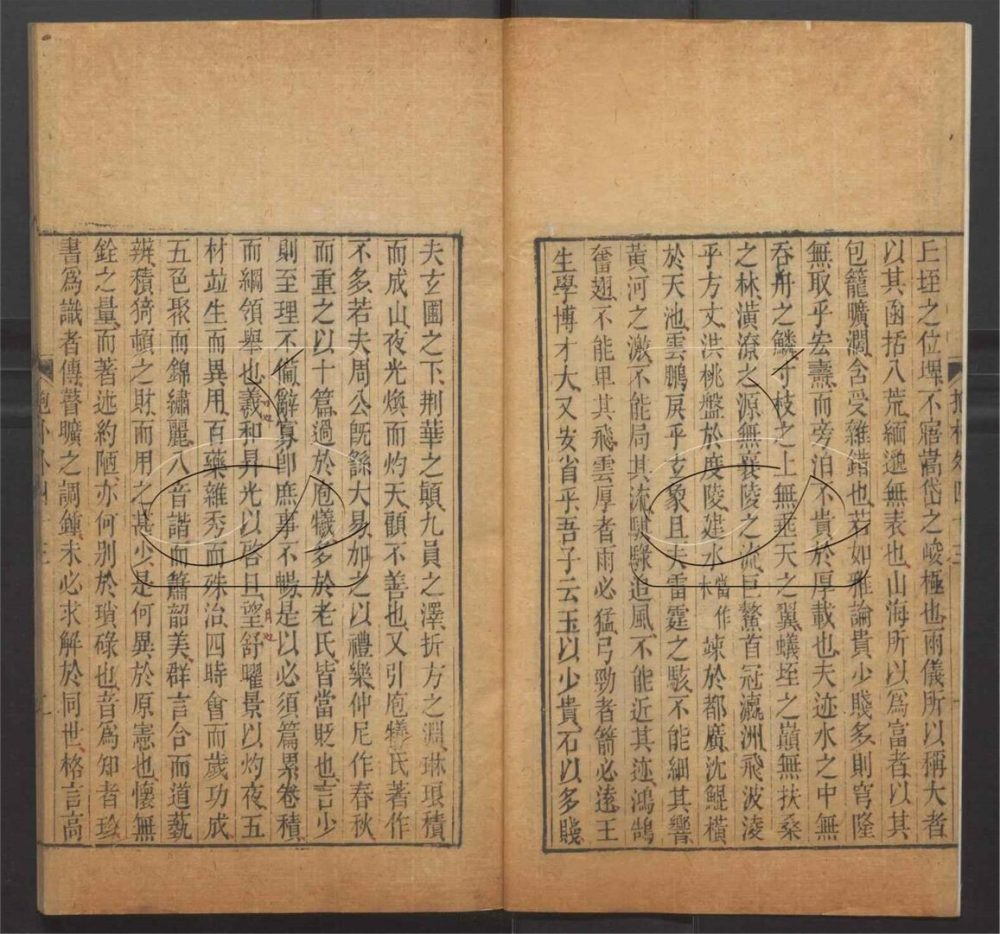 丘垤之位埤不寤嵩岱之峻極也兩儀所以稱大者
以其函括八荒緬邈無表也山海所以為富者以其
包籠曠濶含受雜錯也若如雅論貴少賤多則穹隆
無取乎宏燾而旁泊不貴於厚載也夫迹水之中無
吞舟之鱗寸枝之上無垂天之翼蟻垤之巔無扶桑
之林潢潦之源無襄陵之流巨鰲首冠瀛洲飛波淩
乎方丈洪桃盤於度陵建水當作木竦於都廣沈鯤橫
於天池雲鵬戾乎玄象且夫雷霆之駭不能細其響
黃河之激不能局其流騏騄追風不能近其迹鴻鵠
奮翅不能卑其飛雲厚者雨必猛弓勁者箭必遠王
生學博才大又安省乎吾子云玉以少貴石以多賤
夫玄圃之下荆華之顛九員之澤折方之淵琳琅積
而成山夜光煥而灼天顧不善也又引庖犧氏著作
不多若夫周公旣繇大易加之以禮樂仲尼作春秋
而重之以十篇過於庖犧多於老氏皆當貶也言少
則至理不備辭寡卽庶事不暢是以必須篇累卷積
而綱領舉也羲和昇光以啓旦望舒曜景以灼夜五
材竝生而異用百藥雜秀而殊治四時會而歲功成
五色聚而錦繡麗八音諧而簫韶美群言合而道藝
辨積猗頓之財而用之甚少是何異於原憲也懷無
銓之量而著述約陋亦何别於瑣碌也音爲知者珍
書爲識者傳瞽曠之調鍾未必求解於同世格言高